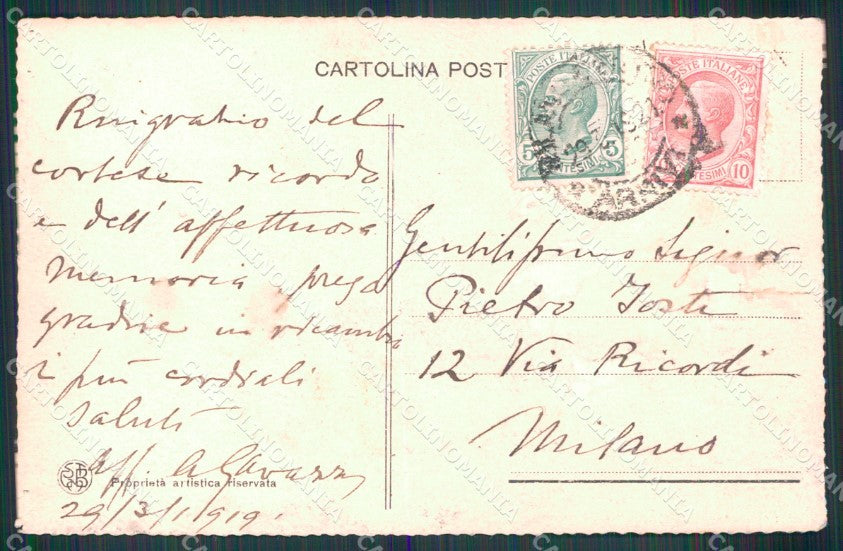 CARTOLINA POST
POSTE ITALIANE
5 5
CENTESIMI
POSTE ITALIANE
10
CENTESIMI
Ringrazio del
cortese ricordo
e dell' affettuosa
memoria, prega
gradire in ricambio
i più cordiali
saluti
aff. AGavazzi
29/3/1919.
Gentilissimo Signor
Pietro Tosti
12 Via Ricordi
Milano
Proprietà artistica riservata
CARTOLINOMANIA